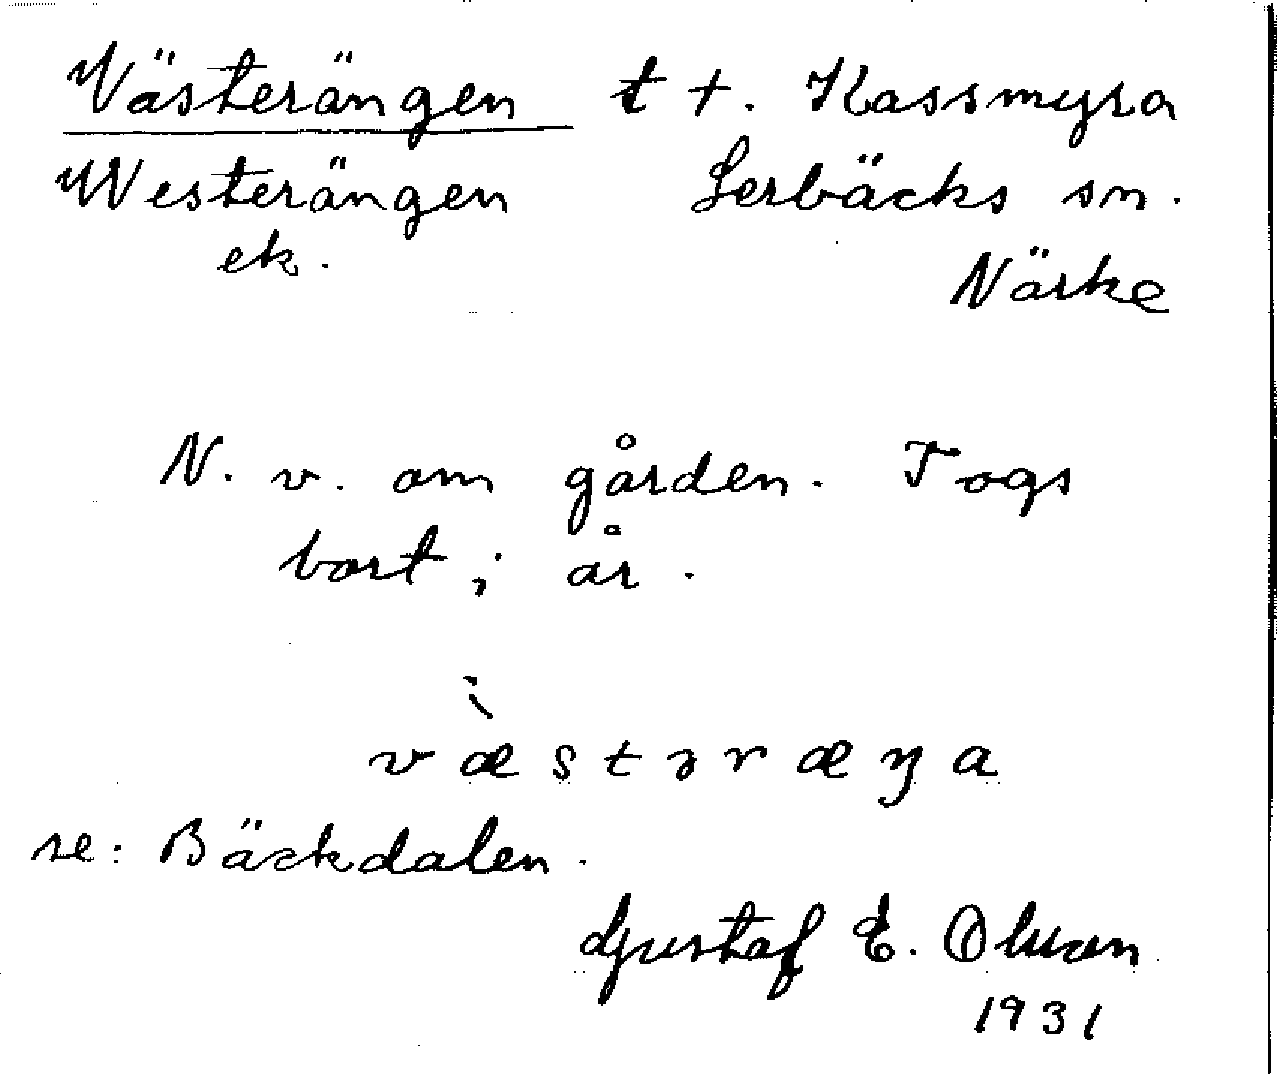 Västerängen t t. Kassmyra
Westerängen Lerbäcks sn.
ek. Närke
N. v. om gården. Togs
bort i år.
væ̀stəræŋa
se: Bäckdalen.
Gustaf E. Olsson
1931